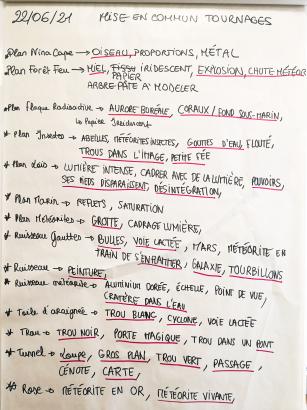 22/06/21 MISE EN COMMUN TOURNAGES
Plan Nina Cape → OISEAU, PROPORTIONS, MÉTAL
Plan Forêt Feu → MIEL, PAPIER IRIDESCENT, EXPLOSION, CHUTE MÉTÉOR
ARBRE PÂTE A MODELER
Plan Flaque Radioactive → AURORE BORÉALE, CORAUX / FOND SOUS-MARIN,
↳ Papier Iridescent
* plan Insectes → ABEILLES, MÉTÉORITES INSECTES, GOUTTES D'EAU, FLOUTÉ,
TROUS DANS L'IMAGE, PETITE FÉE
* Plan Loïs → LUMIÈRE INTENSE, CADRER AVEC DE LA LUMIÈRE, POUVOIRS,
SES PIEDS DISPARAISSENT, DÉSINTÉGRATION,
* Plan Marin → REFLETS, SATURATION
* Plan Météorites → GROTTE, CADRAGE LUMIÈRE,
* Ruisseau gouttes → BULLES, VOIE LACTÉE, MARS, MÉTÉORITE EN
TRAIN DE S'ENFLAMMER, GALAXIE, TOURBILLONS
* Ruisseau → PEINTURE,
* Ruisseau météorite → ALUMINIUM DORÉE, ÉCHELLE, POINT DE VUE,
CRATÈRE DANS L'EAU
* Toile d'araignée → TROU BLANC, CYCLONE, VOIE LACTÉE
* Trou → TROU NOIR, PORTE MAGIQUE, TROU DANS UN PONT
* Tunnel → Loupe, GROS PLAN, TROU VERT, PASSAGE,
CÉNOTE, CARTE,
* Rose → MÉTÉORITE EN OR, MÉTÉORITE VIVANTE,